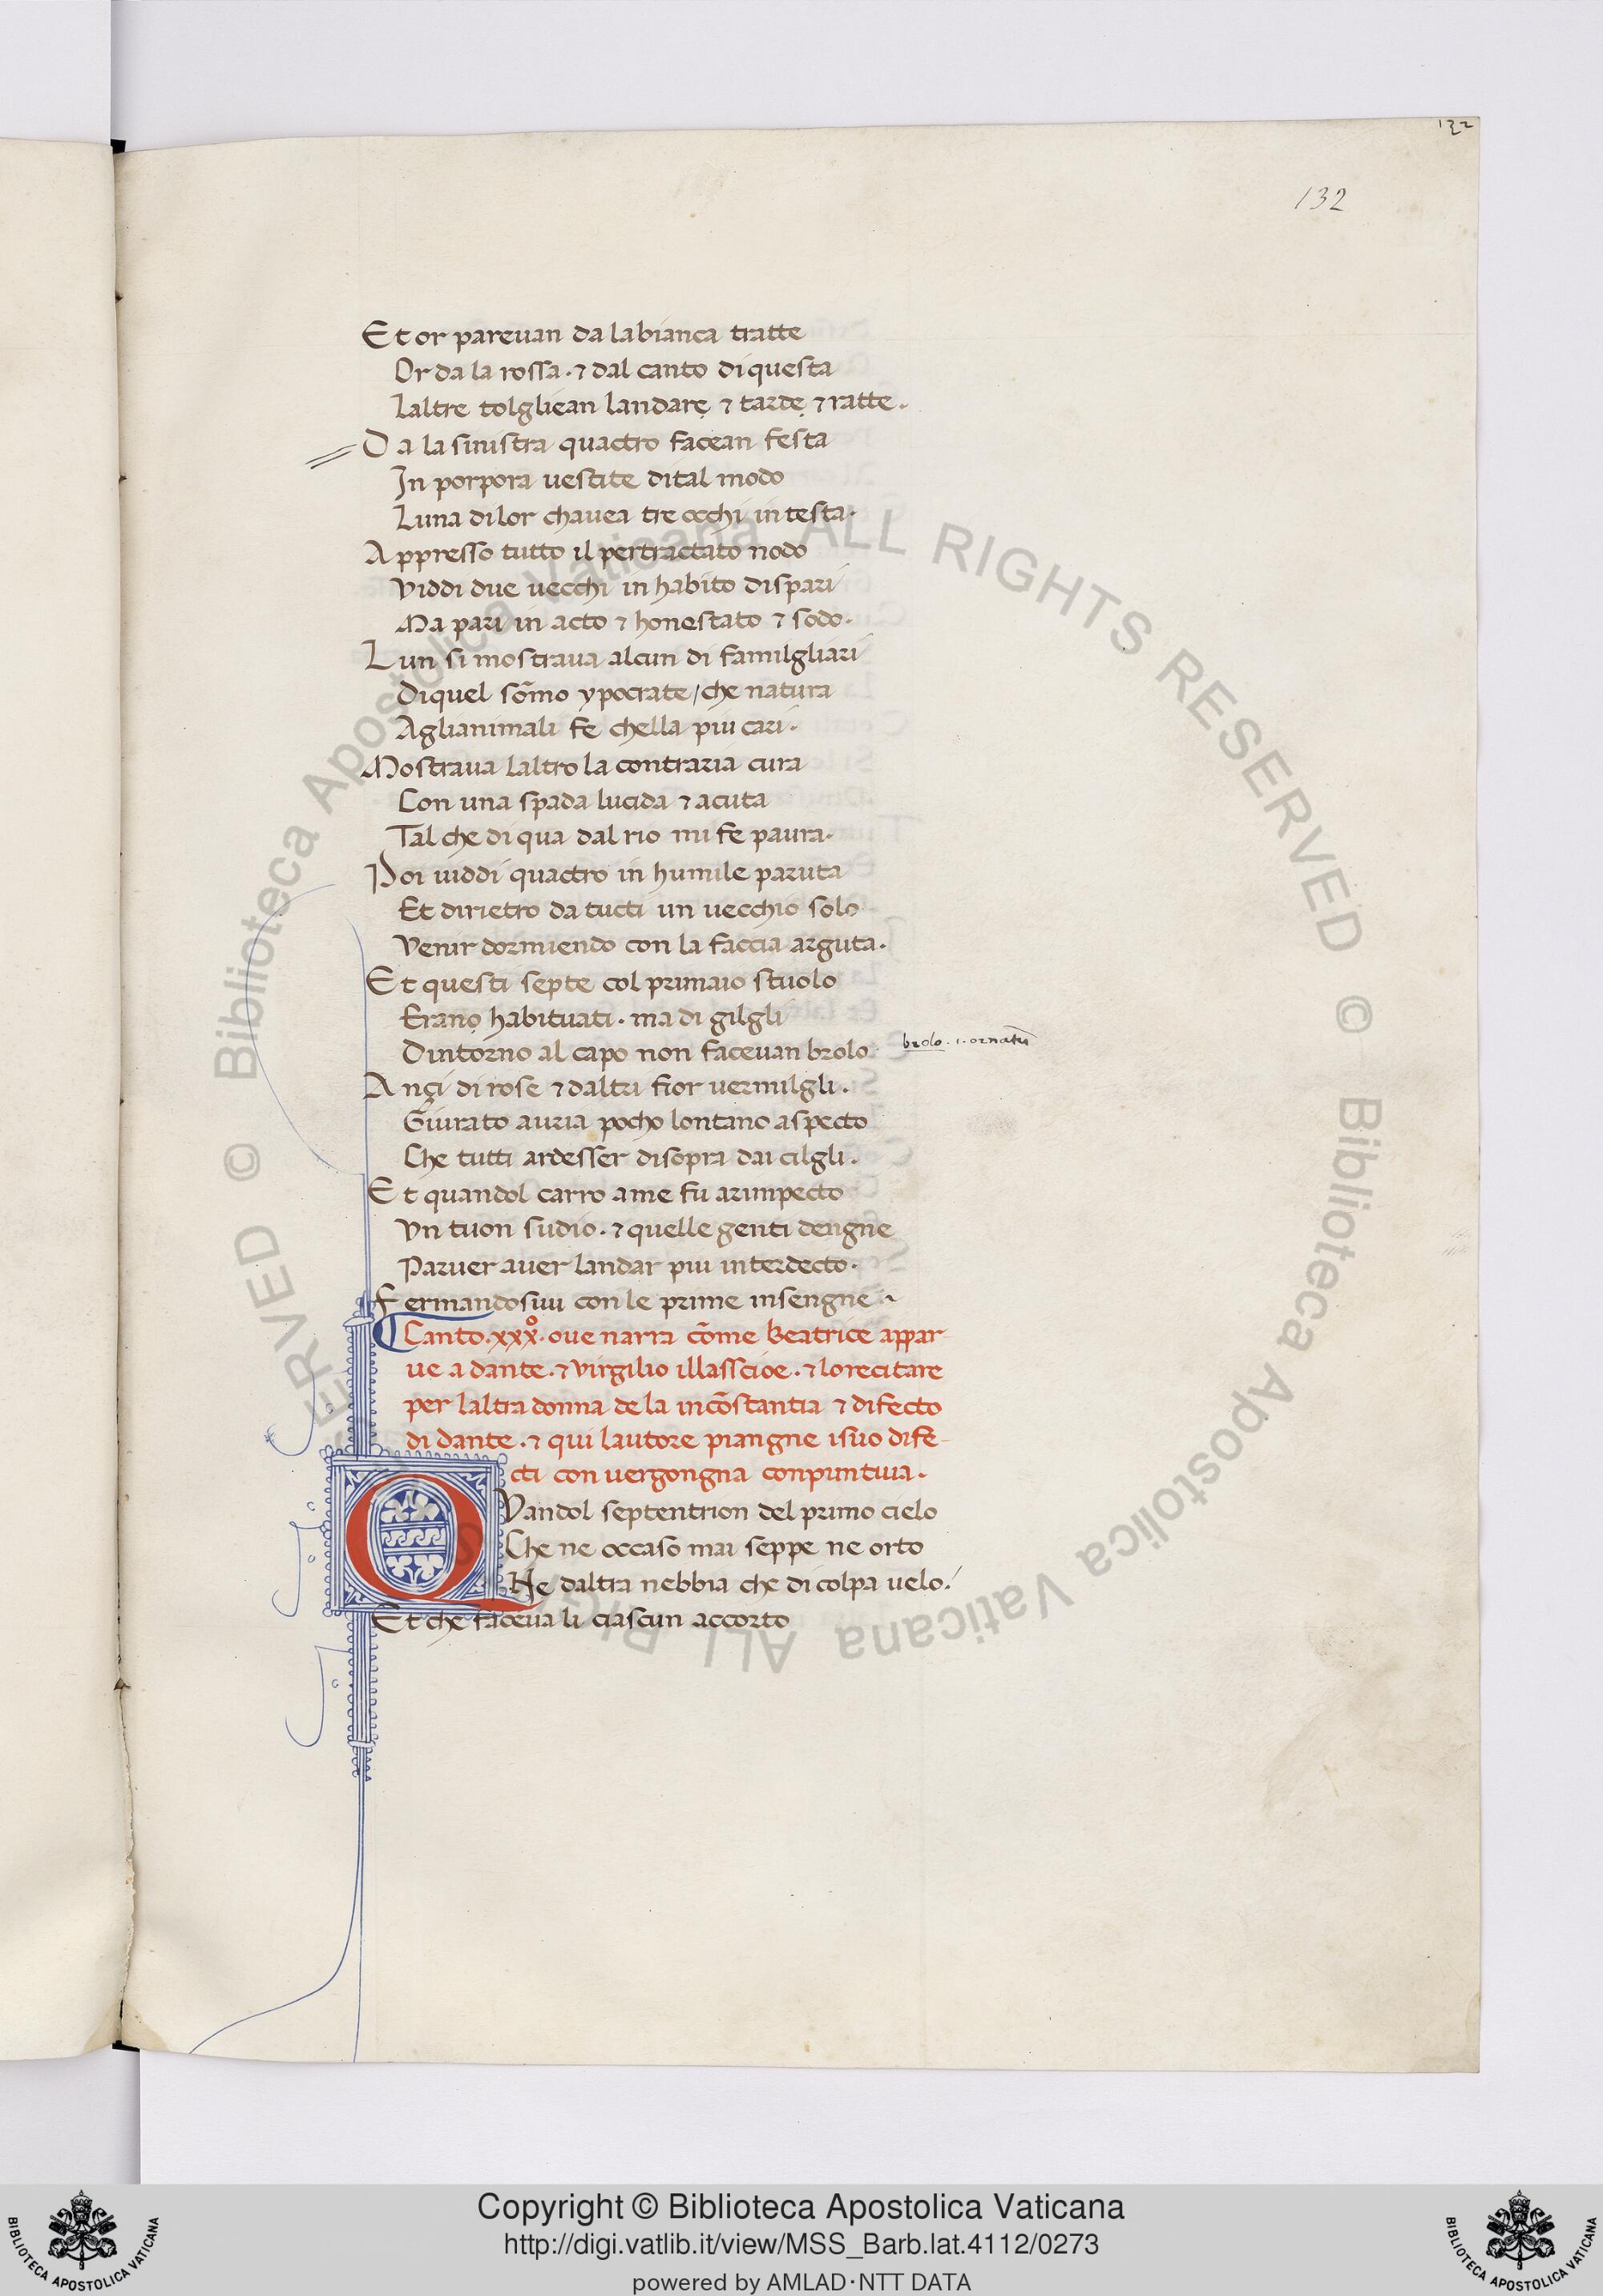 132
132
Et or pareuan da la bianca tratte
Or da la rossa · ⁊ dal canto di questa
Laltre tolglien landare ⁊ tarde ⁊ ratte ·
Da la sinistra quactro facean festa
In porpora uestite dital modo
Luna dilor chauea tre occhi in testa ·
Appresso tutto il pertractato nodo
Viddi due uecchi in habito dispari
Ma pari in acto ⁊ honestato ⁊ sodo ·
Lun si mostraua alcun di familgliari
Diquel sōmo ypocrate / che natura
Aglianimali fe chella piu cari ·
Mostraua laltro la contraria cura
Con una spada lucida ⁊ acuta
Tal che di qua dal rio mi fe paura ·
Poi uiddi quactro in humile paruta
Et dirietro da tucti un uecchio solo
Venir dormiendo con la faccia arguta ·
Et questi septe col primaio stuolo
Erano habituati · ma di gilgli
Dintorno al capo non faceuan brolo
brolo · i · ornatū
Ançi di rose ⁊ daltri fior uermilgli ·
Giurato auria pocho lontano aspecto
Che tutti ardesser disopra dai cilgli ·
Et quandol carro a me fu arimpecto
Vn tuon sudio · ⁊ quelle genti dengne
Paruer auer landar piu interdecto ·
Fermandosiui con le prime insengne
Canto · xxxº · oue narra cōme Beatrice appar-
ue a dante · ⁊ virgilio illasscioe · ⁊ lo recitare
per laltra donna de la incōstantia ⁊ difecto
di dante · ⁊ qui lautore piangne isuo dife-
cti con uergongna conpuntiuia ·
QVandol septentrion del primo cielo
Che ne occaso mai seppe ne orto
Ne daltra nebbia che di colpa uelo ·
Et che faceua li ciascun accorto
© Biblioteca Apostolica Vaticana ALL RIGHTS RESERVED © Biblioteca Apostolica Vaticana ALL RIGHTS RESERVED
Copyright © Biblioteca Apostolica Vaticana
http://digi.vatlib.it/view/MSS_Barb.lat.4112/0273
powered by AMLAD·NTT DATA
BIBLIOTECA APOSTOLICA VATICANA
BIBLIOTECA APOSTOLICA VATICANA